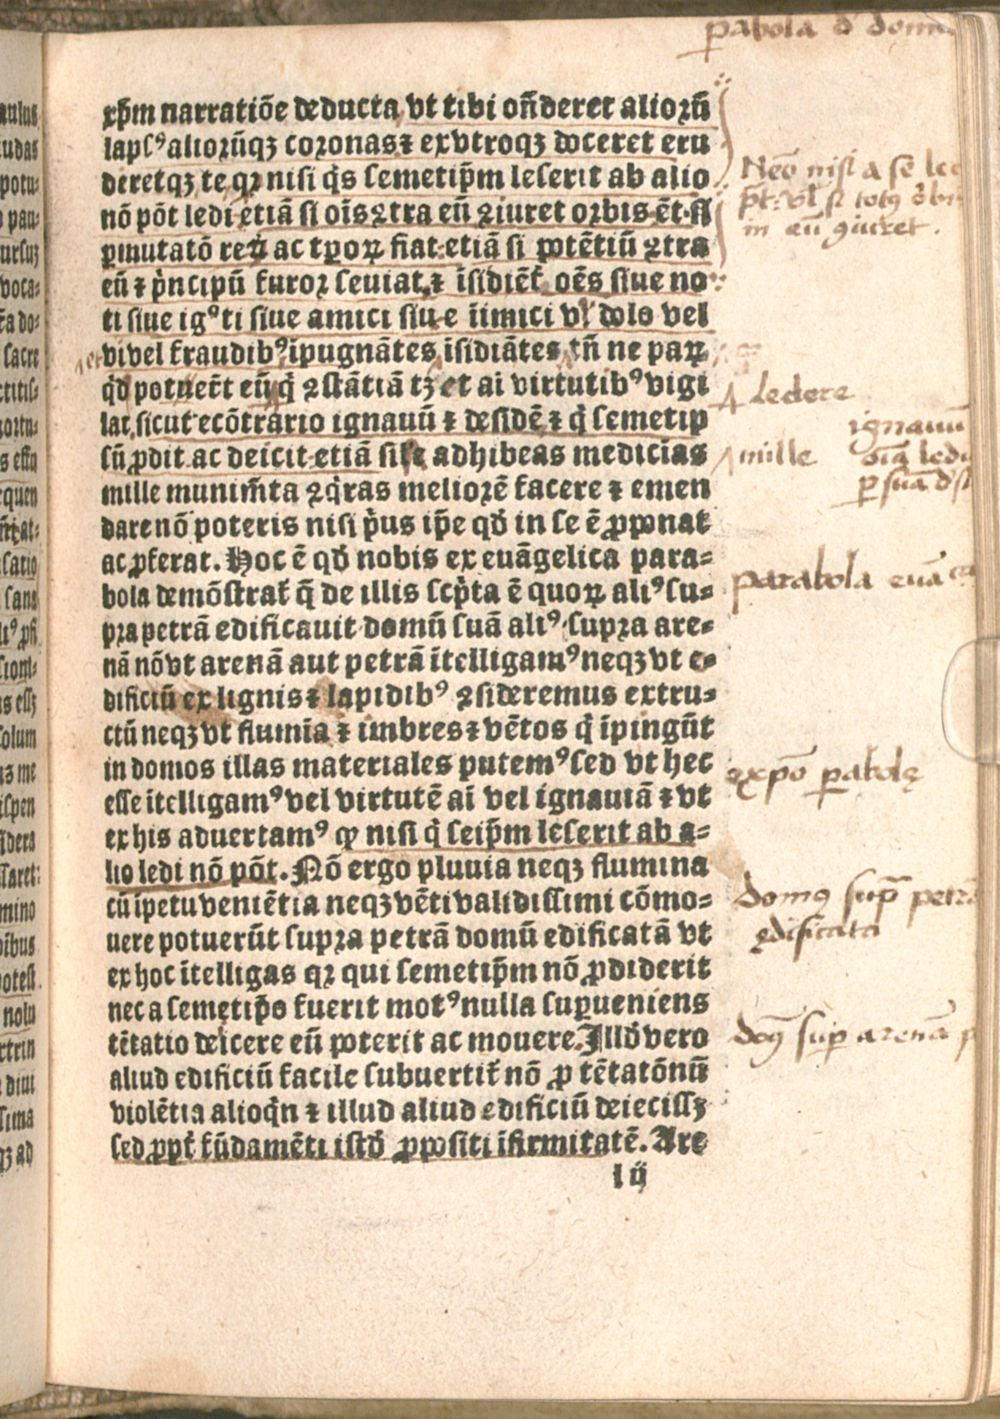 pabola d domu
xp̄m narratiōe deducta vt tibi on̄deret alioꝛū
lapſꝰ alioꝛūqꝫ coꝛonas ⁊ ex vtroqꝫ doceret eru
diretqꝫ te qꝛ niſi q̄s ſemetip̄m leſerit ab alio
nō pōt ledi etiā ſi oīs ꝯtra eū ꝯiuret oꝛbis
ꝑmutatō reꝝ ac tꝑoꝝ fiat etiā ſi potētiū ꝯtra
eū ⁊ p̄ncipū furoꝛ ſeuiat ⁊ īſidiēt̄ oēs ſiue no
ti ſiue igºti ſiue amici ſiue īimici vl̓ dolo vel
vi vel fraudibꝰ īpugnātes īſidiātes tn̄ ne paꝝ
qd̓ potuer̄t eū q̄ ꝯſtātiā tꝫ et ai virtutibꝰ vigi
lat, ſicut ecōtrario ignauū ⁊ deſidē ⁊ q̄ ſemetip
ſū ꝓdit ac deicit etiā ſi adhibeas medicīas
mille munim̄ta ꝯq̄ras melioꝛē facere ⁊ emen
dare nō poteris niſi p̄us ip̄e qd̓ in ſe ē ꝓponat
ac ꝓferat. Hoc ē qd̓ nobis ex euāgelica para⸗
bola demōſtrat̄ q̄ de illis ſcp̄ta ē quoꝝ aliꝰ ſu⸗
pꝛa petrā edificauit domū ſuā aliꝰ ſupꝛa are⸗
nā nō vt arenā aut petrā ītelligamꝰ neqꝫ vt e⸗
dificiū ex lignis ⁊ lapidibꝰ ꝯſideremus extru⸗
ctū neqꝫ vt flumīa ⁊ imbres ⁊ vētos q̄ īpingūt
in domos illas materiales putemꝰ ſed vt hec
eſſe ītelligamꝰ vel virtutē ai vel ignauiā ⁊ vt
ex his aduertamꝰ ꝙ niſi q̄ ſeip̄m leſerit ab a⸗
lio ledi nō pōt. Nō ergo pluuia neqꝫ flumina
cū īpetu veniētia neqꝫ vēti validiſſimi cōmo⸗
uere potuerūt ſupꝛa petrā domū edificatā vt
ex hoc ītelligas qꝛ qui ſemetip̄m nō ꝓdiderit
nec a ſemetip̄o fuerit motꝰ nulla ſuꝑueniens
tētatio deicere eū poterit ac mouere. Illd̓ vero
aliud edificiū facile ſubuertit̄ nō ꝓ tētatōnū
violētia alioq̄n ⁊ illud aliud edificiū deieciſſꝫ
ſed ꝓpt̄ fūdamēti iſtd̓ ꝓpoſiti īfirmitatē. Are
l ij
Nēo niſi a ſe
ꝯiuret.
ledere
ignauū
mille
parabola euā
expō pabolę
domꝰ ſup̄ petrā
ędificata
ſup arenā